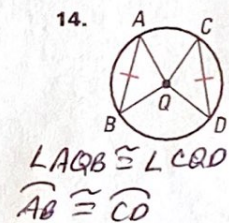 14.
A C
Q
B D
∠AQB ≅ ∠CQD
AB ≅ CD